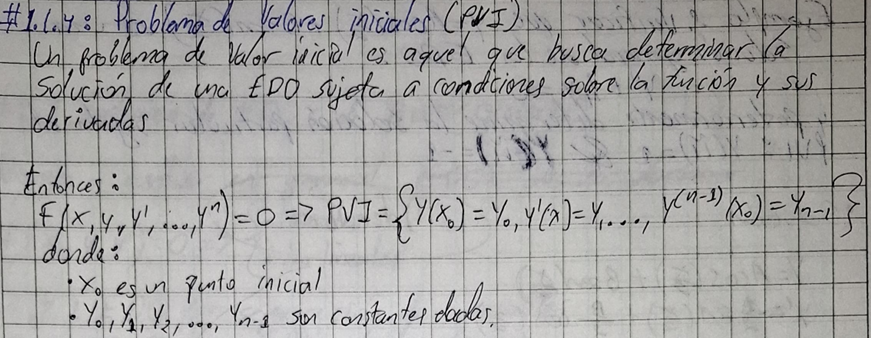 #1.1.4: Problema de Valores iniciales (PVI)
Un problema de valor inicial es aquel que busca determinar la
Solución de una EDO sujeta a condiciones sobre la función y sus
derivadas
Entonces:
F(x, y, y', ..., yⁿ) = 0 => PVI = {y(x₀) = y₀, y'(x) = y₁, ..., y⁽ⁿ⁻¹⁾(x₀) = yₙ₋₁}
donde:
· x₀ es un punto inicial
· y₀, y₁, y₂, ..., yₙ₋₁ son constantes dadas.